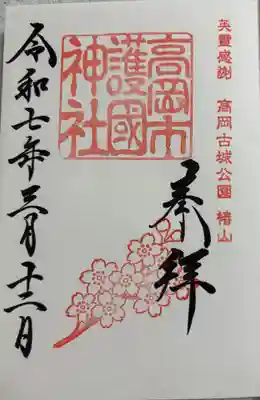 英霊感謝 高岡古城公園 椿山
高岡市
護國
神社
奉拝
令和七年三月十二日